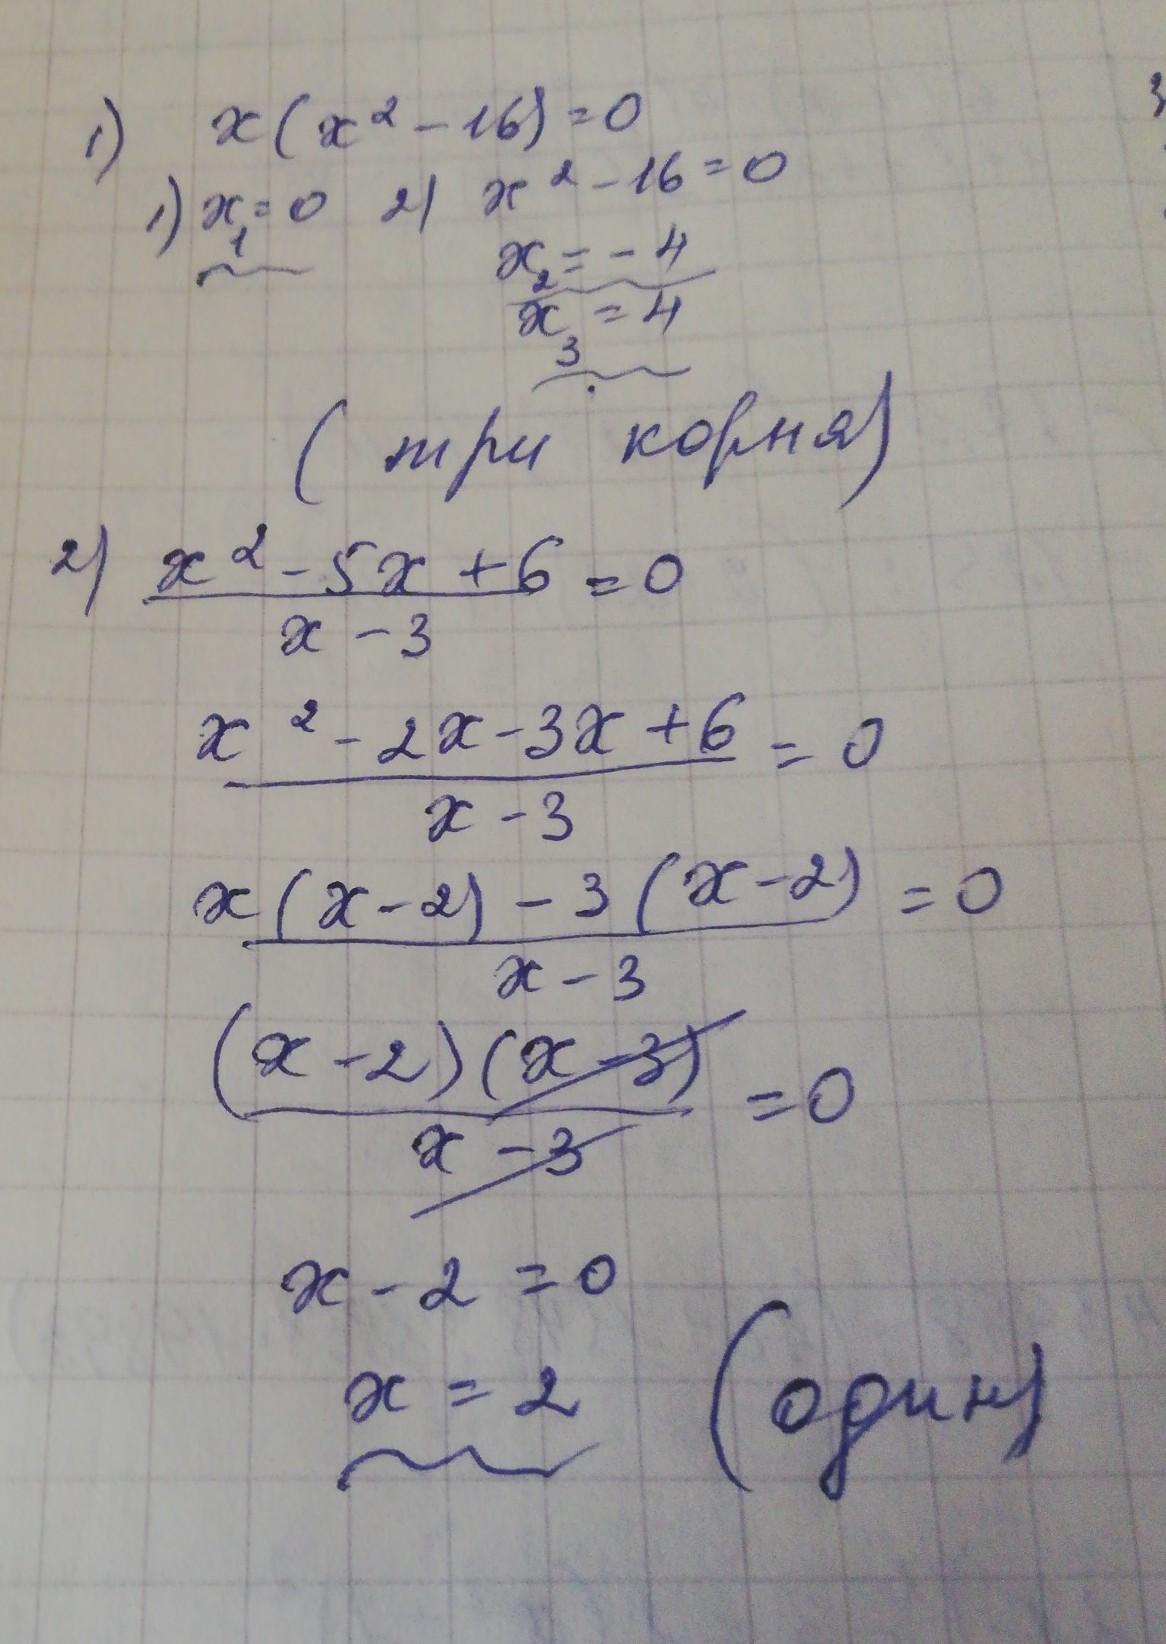 1) x(x² - 16) = 0
1) x₁ = 0 2) x² - 16 = 0
x₂ = - 4
x₃ = 4
(три корня)
2) (x² - 5x + 6)/(x - 3) = 0
(x² - 2x - 3x + 6)/(x - 3) = 0
(x(x - 2) - 3(x - 2))/(x - 3) = 0
((x - 2)(x - 3))/(x - 3) = 0
x - 2 = 0
x = 2 (один)